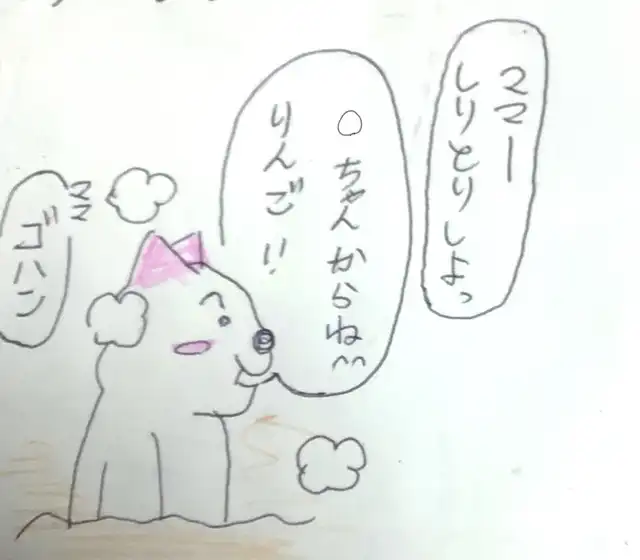 ママー
しりとりしよっ
○ちゃんからね^^
りんご!!
ママ
ゴハン